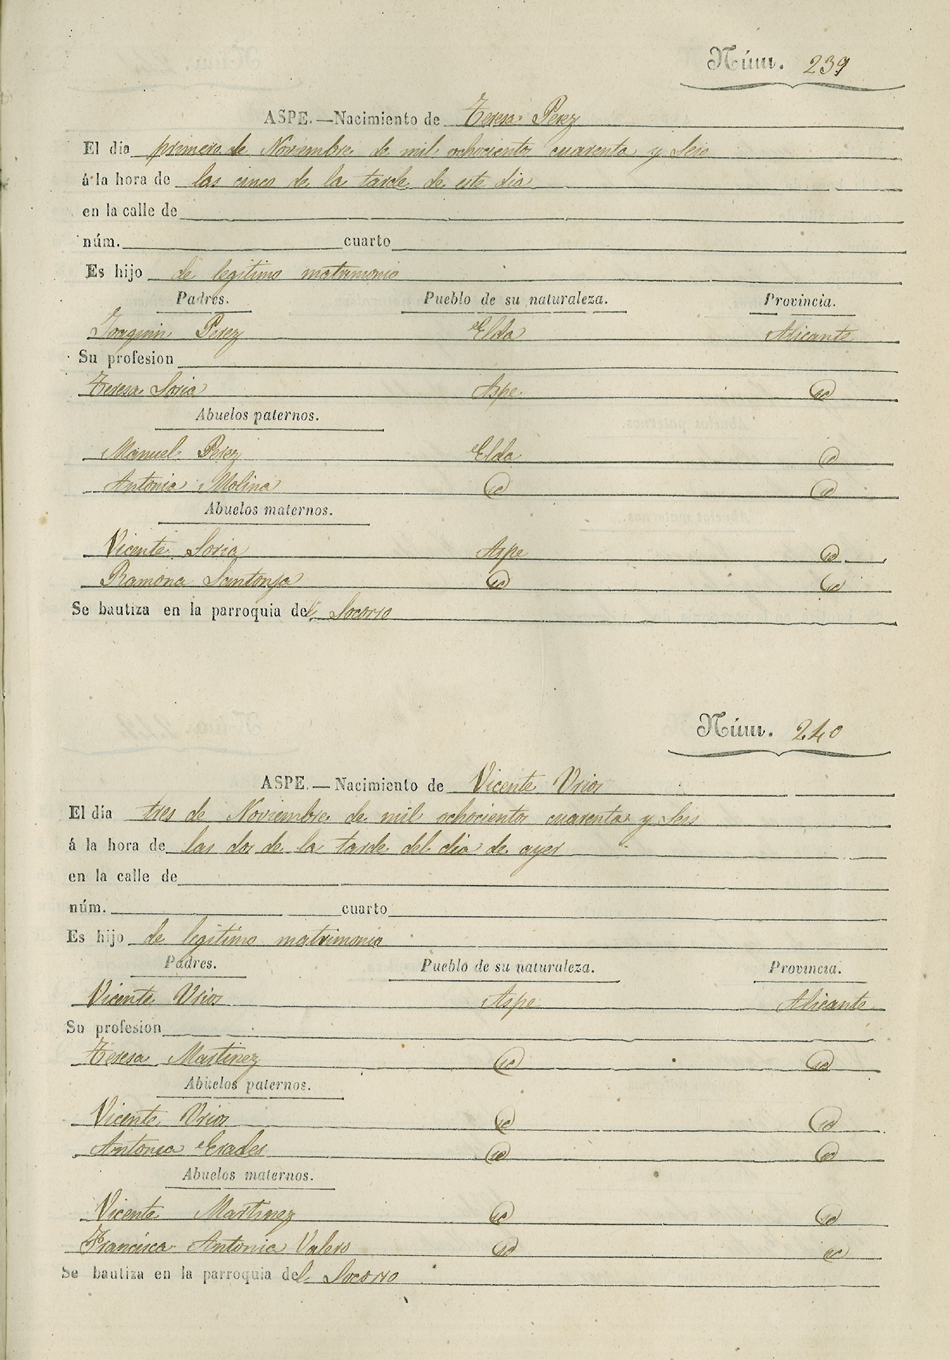 Núm. 239
ASPE.—Nacimiento de Teresa Perez
El dia primero de Noviembre de mil ochociento cuarenta y seis
á la hora de las cinco de la tarde de este dia
en la calle de
núm. cuarto
Es hijo de legitimo matrimonio
Padres. Pueblo de su naturaleza. Provincia.
Joaquin Perez Elda Alicante
Su profesion
Teresa Soria Aspe id
Abuelos paternos.
Manuel Perez Elda id
Antonia Molina id id
Abuelos maternos.
Vicente Soria Aspe id
Ramona Santonja id id
Se bautiza en la parroquia del Socorro
Núm. 240
ASPE.—Nacimiento de Vicente Urios
El dia tres de Noviembre de mil ochocientos cuarenta y seis
á la hora de las dos de la tarde del dia de ayer
en la calle de
núm. cuarto
Es hijo de legitimo matrimonio
Padres. Pueblo de su naturaleza. Provincia.
Vicente Urios Aspe Alicante
Su profesion
Teresa Martinez id id
Abuelos paternos.
Vicente Urios id id
Antonia Erades id id
Abuelos maternos.
Vicente Martinez id id
Francisca Antonia Valero id id
Se bautiza en la parroquia del Socorro